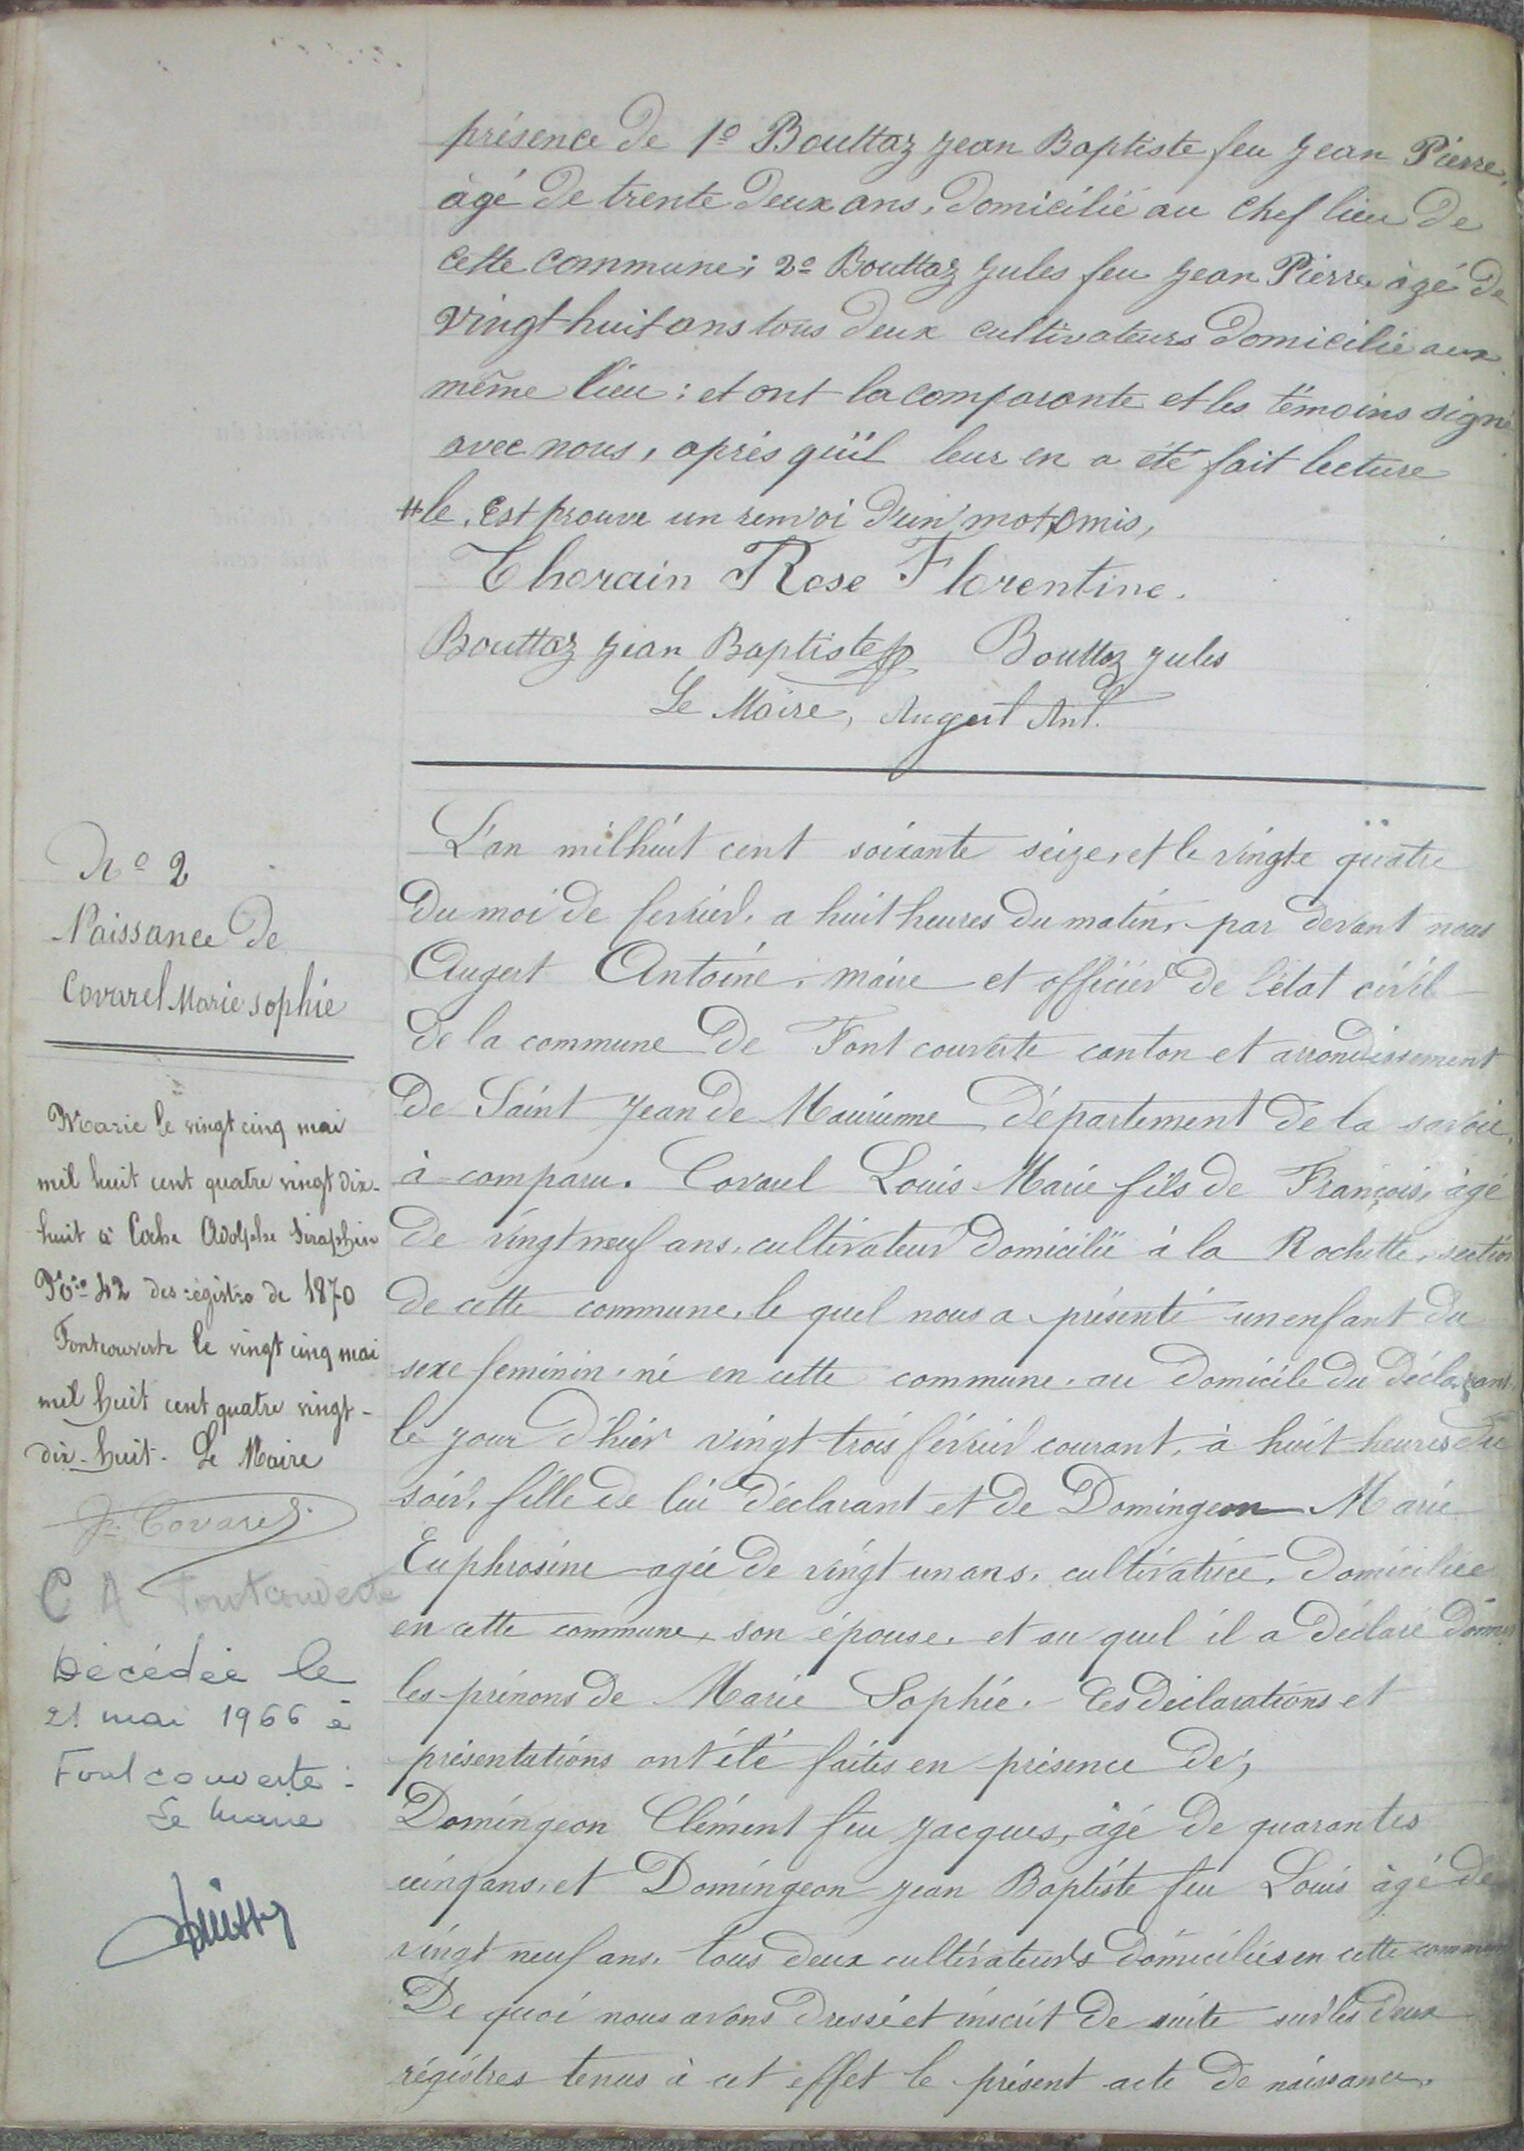 présence de 1º Bouttaz Jean Baptiste feu Jean Pierre,
âgé de trente deux ans, domicilié au chef lieu de
cette commune; 2º Bouttaz Jules feu Jean Pierre âgé de
vingt huit ans tous deux cultivateurs domicilié aux
même lieu: et ont la comparante et les témoins signé
avec nous, après qu'il leur en a été fait lecture
#le. Est prouve un renvoi d'un mot omis,
Thorain Rose Florentine.
Bouttaz Jean Baptiste Bouttaz Jules
Le Maire, Augert Ant.
Nº 2
Naissance de
Covarel Marie Sophie
Marie le vingt cinq mai
mil huit cent quatre vingt dix-
huit à Coche Adolphe Séraphin
Nº 42 des registre de 1870
Fontcouverte le vingt cinq mai
mil huit cent quatre vingt-
dix-huit. Le Maire
Covarel
C A Fontcouverte
Décédée le
21 mai 1966 à
Fontcouverte.
Le Maire
L'an mil huit cent soixante seize, et le vingte quatre
du moi de fevrier, a huit heures du matin, par devant nous
Augert Antoine, maire et officier de l'état civil
de la commune de Font couverte canton et arrondissement
de Saint Jean de Maurienne, Département de la savoie,
à comparu. Covarel Louis Marie fils de François, âgé
de vingt neuf ans, cultivateur domicilié à la Rochette, section
de cette commune, le quel nous a présenté un enfant du
sexe feminin, né en cette commune, au domicile du déclarant
le jour d'hier vingt trois février courant, à huit heures du
soir, fille de lui déclarant et de Domingeon Marie
Euphrosine agée de vingt un ans, cultivatrice, domiciliée
en cette commune, son épouse, et au quel il a déclaré donner
les prénons de Marie Sophie. Ces déclarations et
présentations ont été faites en présence de,
Domingeon Clément feu Jacques, âgé de quarantes
cinq ans, et Domingeon Jean Baptiste feu Louis âgé de
vingt neuf ans, tous deux cultivateurs domiciliés en cette commune
De quoi nous avons dressé et inscrit de suite sur les deux
régistres tenus à cet effet le présent acte de naissance.